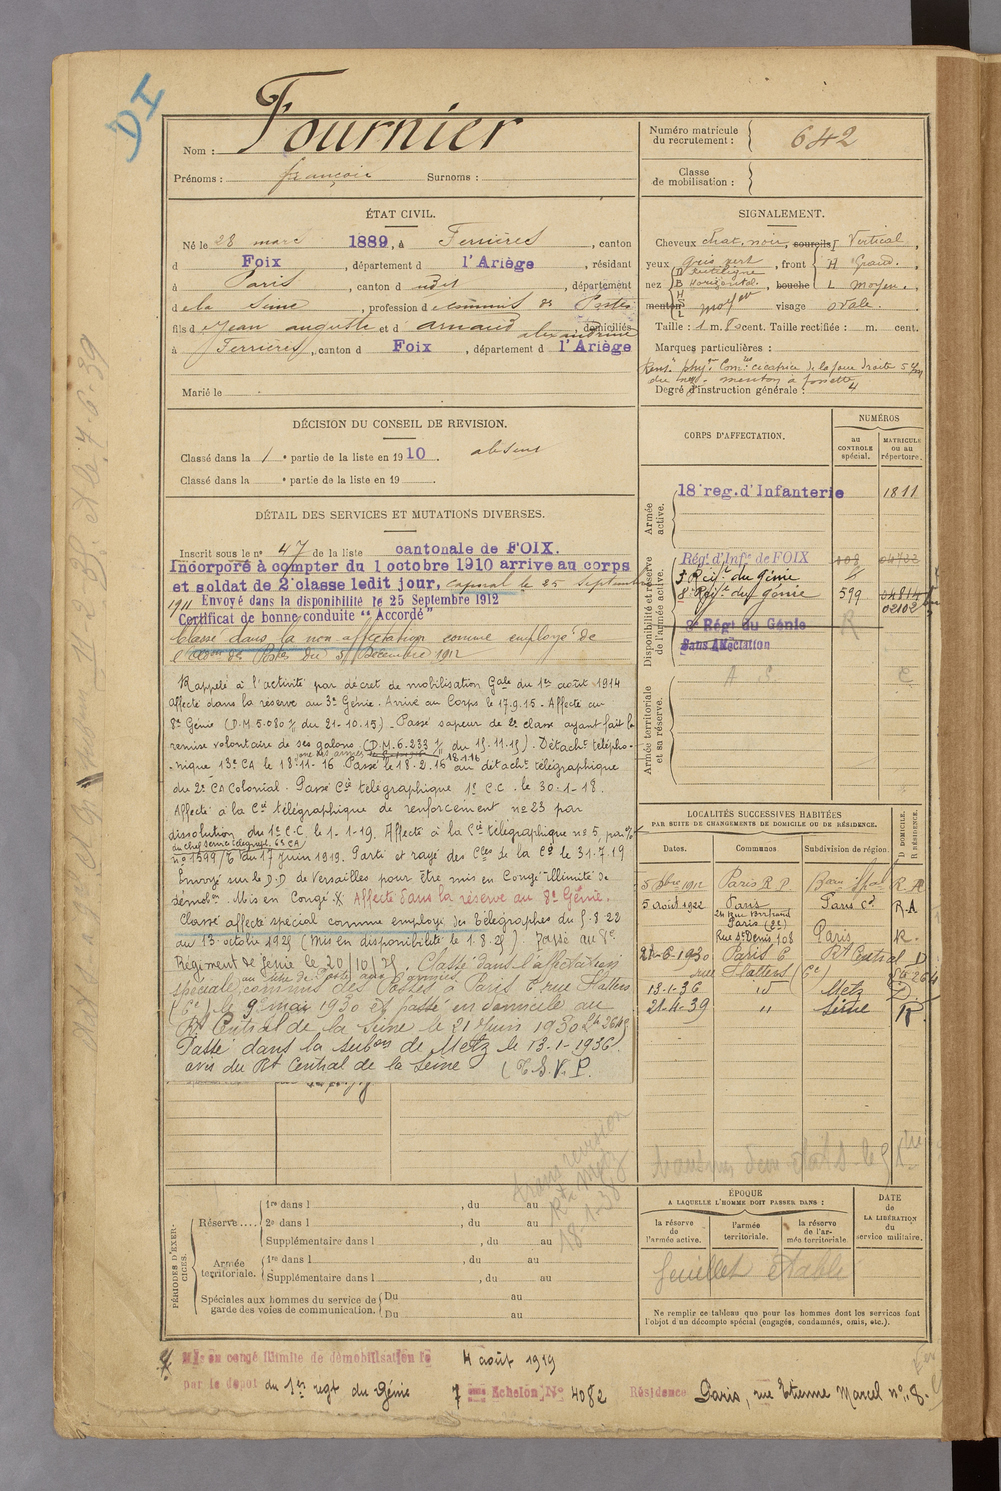 DI
Nom : Fournier
Prénoms : françois Surnoms :
Numéro matricule du recrutement : 642
Classe de mobilisation :
ÉTAT CIVIL.
Né le 28 mars 1889, à Ferrières, canton
d Foix, département d l'Ariège, résidant
à Paris, canton d udit, département
de la Seine, profession de commis des Postes
fils de Jean auguste et d arnaud alexandrine, domiciliés
à Ferrières, canton d Foix, département d l'Ariège
Marié le
SIGNALEMENT.
Cheveux chat. noir, sourcils Vertical,
yeux gris vert, front H Grand.
nez rectiligne
B Horizontal. bouche L moyen.
menton moyen visage ovale.
Taille : 1 m. cent. Taille rectifiée : m. cent.
Marques particulières :
Rens.ts phys. Com.res cicatrice de la joue droite
du nez - menton à fossette
Degré d'instruction générale : 4
DÉCISION DU CONSEIL DE REVISION.
Classé dans la 1e partie de la liste en 1910. absent
Classé dans la e partie de la liste en 19
DÉTAIL DES SERVICES ET MUTATIONS DIVERSES.
Inscrit sous le no 47 de la liste cantonale de FOIX.
Incorporé à compter du 1 octobre 1910 arrive au corps
et soldat de 2e classe ledit jour, caporal le 25 septembre
1911 Envoyé dans la disponibilité le 25 Septembre 1912
Certificat de bonne conduite "Accordé"
Classé dans la non affectation comme employé de
l'adon des Postes du 5 Décembre 1912
Rappelé à l'activité par décret de mobilisation Gale du 1er août 1914
affecté dans la réserve au 3e Génie. Arrivé au Corps le 17.9.15 - Affecté au
8e Génie (D.M. 5.080 7/ du 21-10.15) - Passé sapeur de 2e classe ayant fait la
remise volontaire de ses galons (D.M. 6.233 7/ du 15.11.15). Détacht télépho-
-nique 13e CA le 18-11-16 Passé le 18.2.16 au détacht télégraphique
18.1.16
du 2e CA Colonial. Passé Cie télégraphique 1er C.C. le 30-1-18.
Affecté à la Cie télégraphique de renforcement no 23 par
dissolution du 1er C.C. le 1-1-19. Affecté à la Cie télégraphique no 5 par
du chef service telegraph. 63 CA
no 1599/T du 17 juin 1919. Parti et rayé des Cles de la Cie le 31.7.19
Envoyé sur le D.D de Versailles pour être mis en Congé Illimité de
démobon. Mis en Congé X Affecté dans la réserve au 8e Génie.
Classé affecté spécial comme employé des télégraphes du 5-8-22
au 13 octobre 1925 (Mis en disponibilité le 1.8.25). Passé au 8e
Régiment de Génie le 20/10/25. Classé dans l'affectation
spéciale au titre de Poste aux Armées
commis des Postes à Paris 6 rue Hallens
(6e) le 9 mai 1930 et passé en domicile au
Rt Central de la Seine le 21 Juin 1930
Passé dans la subon de Metz le 13-1-1936.
avis du Rt Central de la Seine (T.S.V.P.
CORPS D'AFFECTATION.
NUMÉROS
au CONTROLE spécial.
MATRICULE ou au répertoire.
Armée active.
18e reg. d'Infanterie 1811
Disponibilité et réserve de l'armée active.
Régt d'Infie de FOIX 108
5 Régt du Génie 6
8e Régt du génie 599 04814
02102
8e Régt du Génie R
Sans Affectation
Armée territoriale et sa réserve.
LOCALITÉS SUCCESSIVES HABITÉES
PAR SUITE DE CHANGEMENTS DE DOMICILE OU DE RÉSIDENCE.
Dates. Communes Subdivision de région. D DOMICILE. R RÉSIDENCE.
1912 Paris R P R
5 Août 1922 Paris Paris Cl R.A
24 Rue Bertrand
Paris (2e)
Rue St Denis 108 Paris R.
21-6-1930 Paris 6 Rt Central D
rue Hallens (6e)
13-1-36 id Metz D
21-4-39 " Seine R
PÉRIODES D'EXERCICES.
Réserve.... 1re dans l , du au
2e dans l , du au
Supplémentaire dans l , du au
Armée territoriale. 1re dans l , du au
Supplémentaire dans l , du au
Spéciales aux hommes du service de garde des voies de communication. Du au
Du au
trans revision
Rt Metz
18-1-38
ÉPOQUE
A LAQUELLE L'HOMME DOIT PASSER DANS :
la réserve de l'armée active.
l'armée territoriale.
la réserve de l'armée territoriale.
DATE de LA LIBÉRATION du service militaire.
feuillet établi
Ne remplir ce tableau que pour les hommes dont les services font
l'objet d'un décompte spécial (engagés, condamnés, omis, etc.).
X Mis en congé illimité de démobilisation le 4 août 1919
par le dépôt du 1er regt du Génie 7 Echelon, No 4082 Résidence Paris, rue Etienne Marcel no 8.